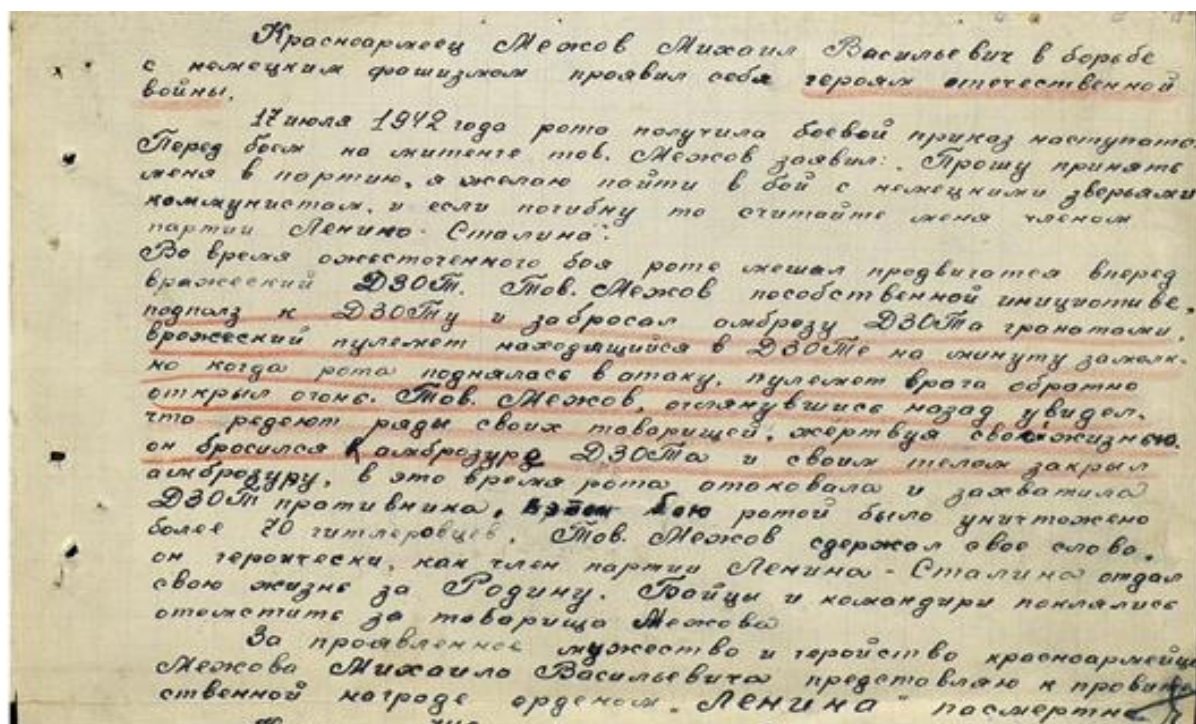 Красноармеец Межов Михаил Васильевич в борьбе
с немецким фашизмом проявил себя героям отечественной
войны.
17 июля 1942 года рота получила боевой приказ наступать.
Перед боем на митенге тов. Межов заявил: „Прошу принять
меня в партию, я желаю пойти в бой с немецкими зверьями
коммунистом, и если погибну то считайте меня членом
партии Ленина-Сталина".
Во время ожесточенного боя роте мешал продвигатся вперед
вражеский ДЗОТ. Тов. Межов пособственной инициативе,
подполз к ДЗОТу и забросал амброзу ДЗОТа гранатами,
вражеский пулемет находящийся в ДЗОТе на минуту замолк.
но когда рота поднялась в атаку, пулемет врага обратно
открыл огонь. Тов. Межов, оглянувшись назад увидел,
что редеют ряды своих товарищей, жертвуя своей жизнью.
он бросился к амброзуре ДЗОТа и своим телом закрыл
амброзуру, в это время рота атаковала и захватила
ДЗОТ противника, в этом бою ротой было уничтожено
более 70 гитлеровцев. Тов. Межов сдержал свое слово,
он героически, как член партии Ленина-Сталина отдал
свою жизнь за Родину. Бойцы и командири поклялись
отомстить за товарища Межова
За проявленное мужество и геройство красноармейца
Межова Михаила Васильевича представляю к правител
ственной награде орденом „Ленина" посмертно